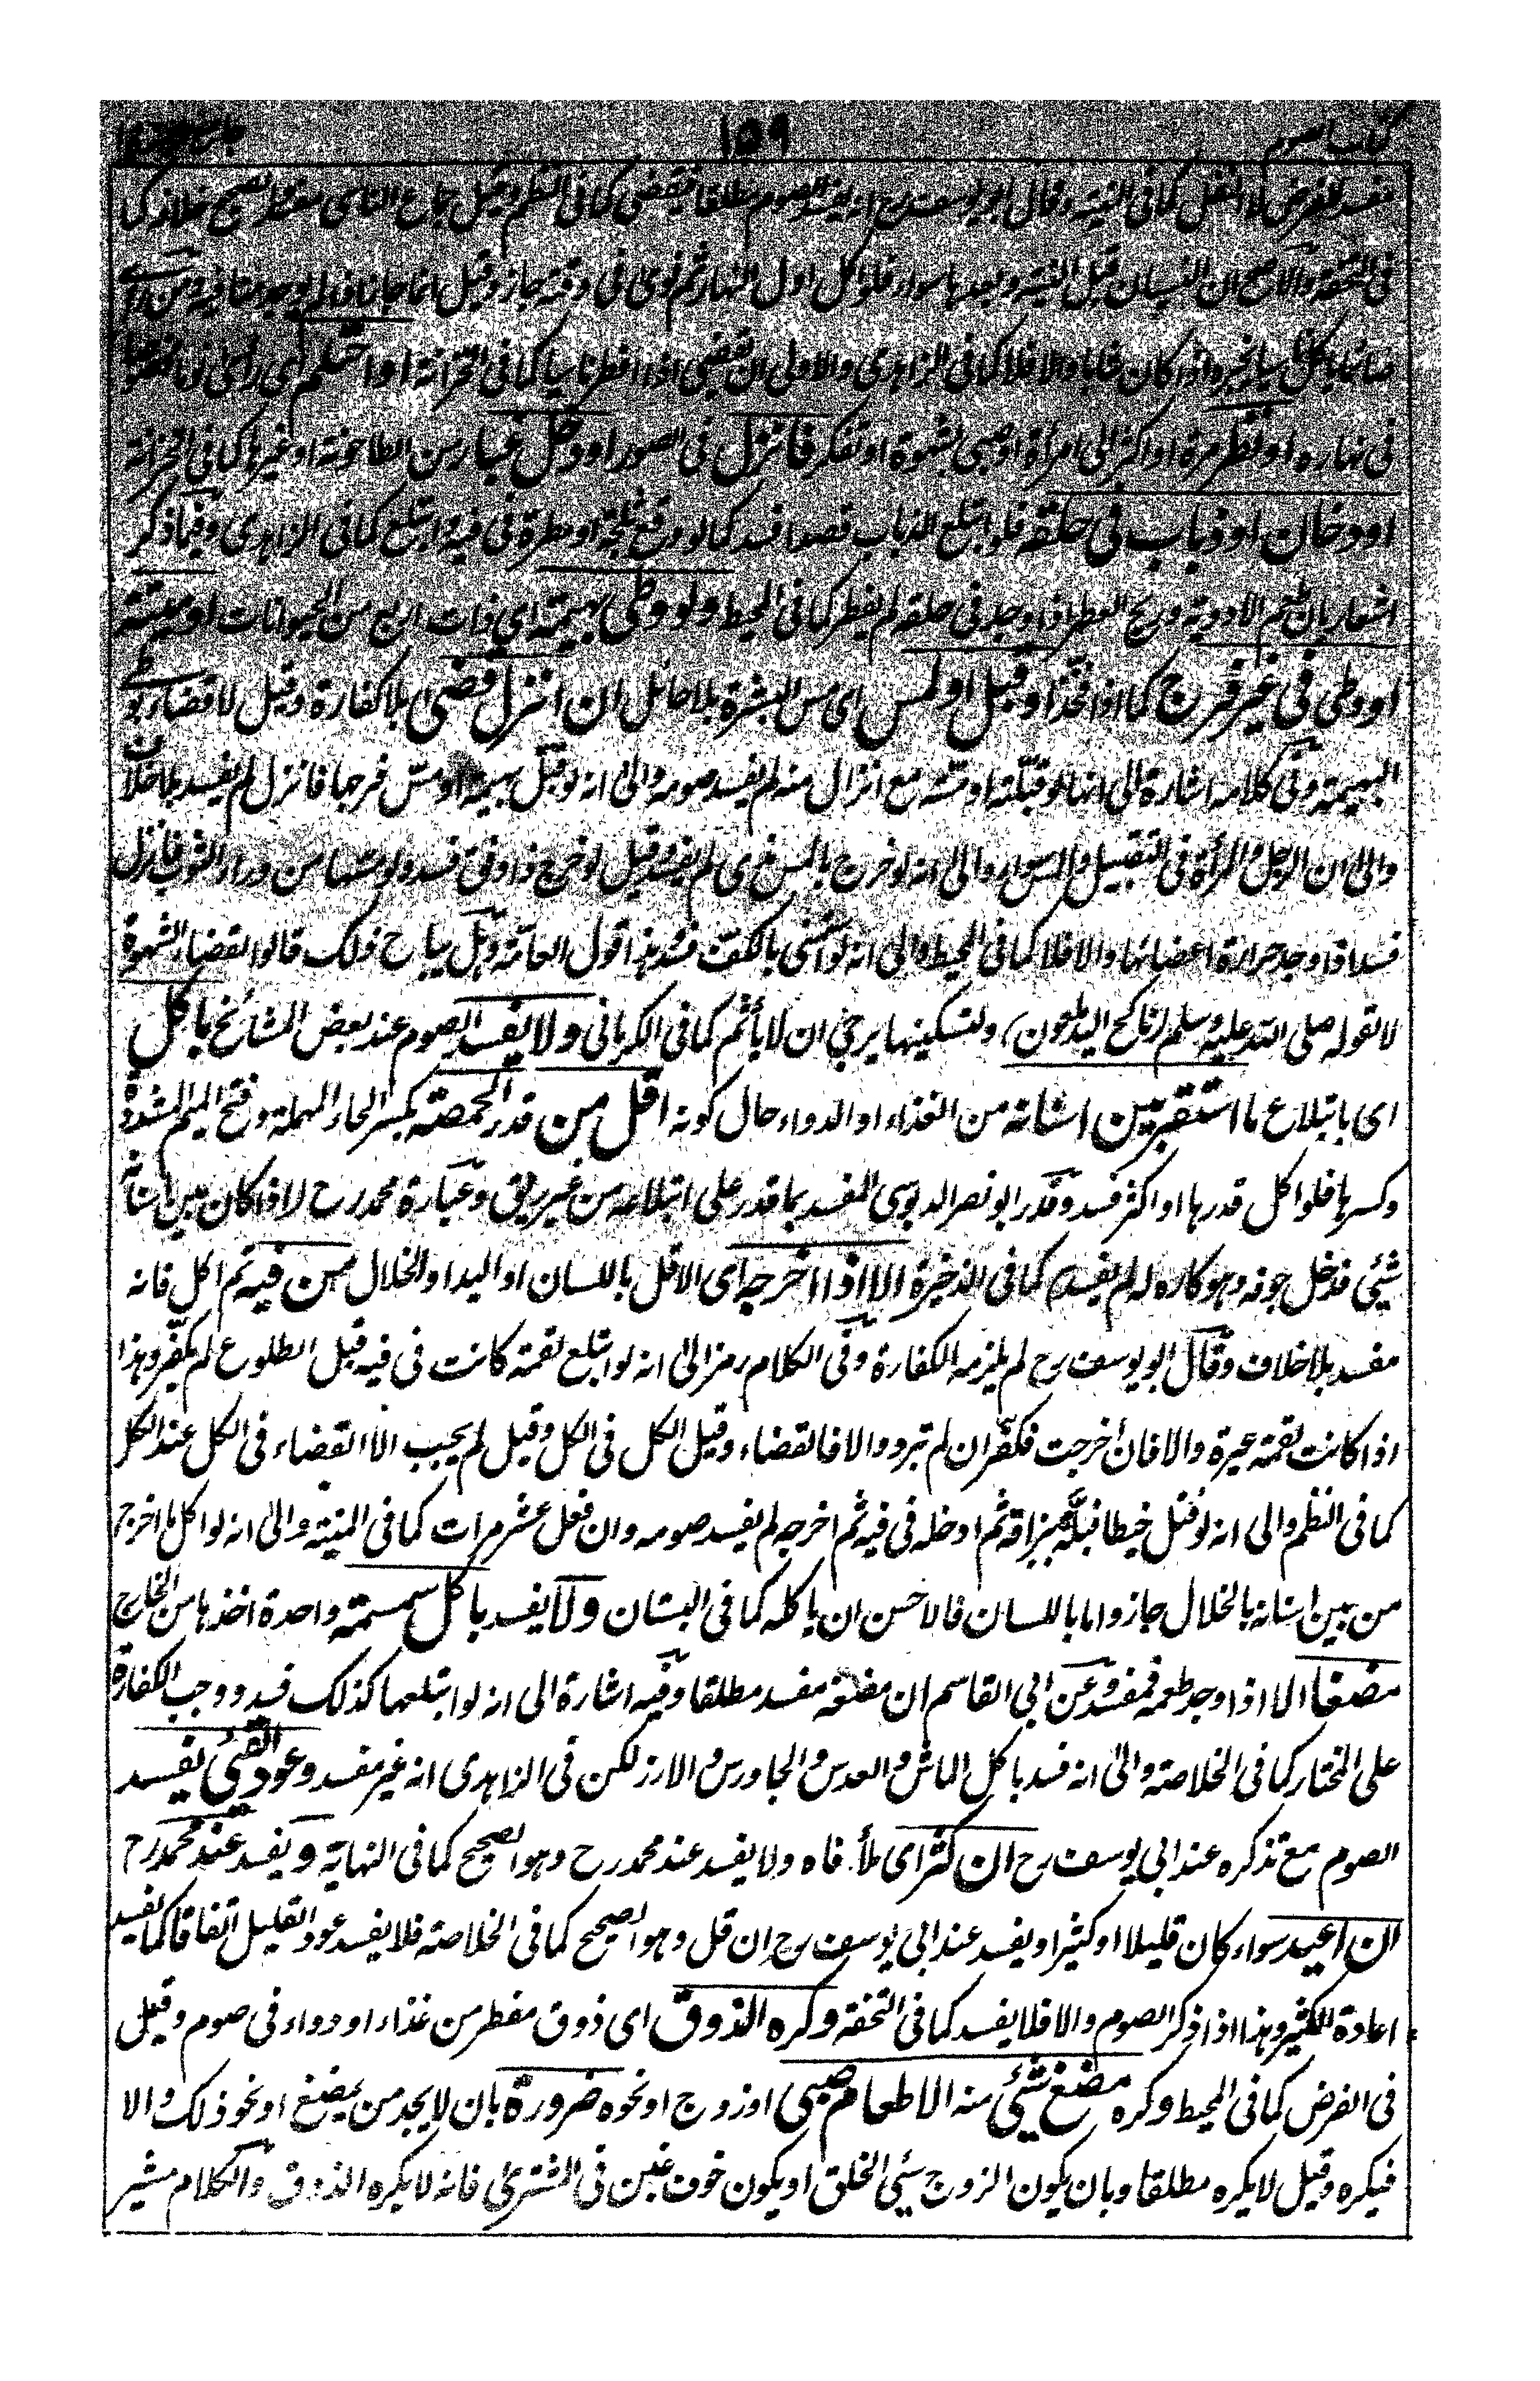 كتاب الصوم
١٥٩
مفسد للفرض لا النفل كما فى المنية وقال ابو يوسف رح انه يفسد الصوم مطلقا فيقضى كما فى النظم وقيل جماع الناسى مفطر والصحيح خلافه كما
فى التحفة والاصح ان النسيان قبل النية وبعدها سواء فلو اكل اول النهار ثم نوى فى وقته جاز وقيل انما جاز اذا لم يوجد منافيه ومن رأى
صائما يأكل ناسيا يخبره اذا كان شابا والا فلا كما فى الزاهدى والاولى ان يقضى اذا افطر ناسيا كما فى الخزانة او احتلم اى رأى
فى نهاره او نظر مرة او اكثر الى امرأة او صبى بشهوة او تفكر فانزل فى الصور او دخل غبار من الطاحونة او غيرها كما فى الخزانة
او دخان او ذباب فى حلقه فلو ابتلع الذباب قصدا فسد كما لو وقع ثلجة او مطرة فى فيه وابتلع كما فى الزاهدى وفيما ذكر
اشعار بان طعم الادوية وريح العطر اذا وجد فى حلقه لم يفطر كما فى المحيط ولو وطى بهيمة اى ذات اربع من الحيوانات او ميتة
او وطى فى غير فرج كما اذا فخذ او قبل او لمس اى مس البشرة بلا حائل ان انزل قضى بلا كفارة وقيل لا قضاء بوطى
البهيمة وفى كلامه اشارة الى انها لو قبلته او مسته مع انزال منه لم يفسد صومه والى انه لو قبل بهيمة او مس فرجها فانزل لم يفسد بلا خلاف
والى ان الرجل والمرأة فى التقبيل والمس سواء والى انه لو خرج بالمس مذى لم يفسد وقيل لو خرج ذا دفق فسد ولو مسها من وراء الثوب فانزل
فسد اذا وجد حرارة اعضائها والا فلا كما فى المحيط والى انه لو استمنى بالكف فسد وهذا قول العامة وهل يباح ذلك قالوا لقضاء الشهوة
لا لقوله صلى الله عليه وسلم (ناكح اليد ملعون) ولتسكينها يرجى ان لا يأثم كما فى الكرمانى ولا يفسد الصوم عند بعض المشائخ باكل
اى بابتلاع ما استقر بين اسنانه من الغذاء او الدواء حال كونه اقل من قدر الحمصة بكسر الحاء المهملة وفتح الميم المشددة
وكسرها فلو اكل قدرها او اكثر فسد وقدر ابو نصر الدبوسى المفسد بما قدر على ابتلاعه من غير ريق وعبارة محمد رح لا اذا كان بين اسنانه
شيئ فدخل جوفه وهو كاره له لم يفسد) كما فى الذخيرة الا اذا اخرجه اى الاقل باللسان او اليد او الخلال من فيه ثم اكل فانه
مفسد بلا خلاف وقال ابو يوسف رح لم يلزمه الكفارة وفى الكلام رمز الى انه لو ابتلع لقمة كانت فى فيه قبل الطلوع لم يكفر وهذا
اذا كانت لقمة غيره والا فان اخرجت فكفر ان لم تبرد والا فالقضاء وقيل الكل فى الكل وقيل لم يجب الا القضاء فى الكل عند الكل
كما فى النظم والى انه لو فتل خيطا فبله ببزاقه ثم ادخله فى فيه ثم اخرجه لم يفسد صومه وان فعل عشر مرات كما فى المنية والى انه لو اكل ما اخرج
من بين اسنانه بالخلال جاز واما باللسان فالاحسن ان يأكله كما فى البستان ولا يفسد باكل سمسمة واحدة اخذها من الخارج
مضغا الا اذا وجد طعمه فمفسد وعن ابى القاسم ان مضغه مفسد مطلقا وفيه اشارة الى انه لو ابتلعها كذلك فسد ووجب الكفارة
على المختار كما فى الخلاصة والى انه فسد باكل الماش والعدس والجاورس والارز لكن فى الزاهدى انه غير مفسد وعود القيئ يفسد
الصوم مع تذكره عند ابى يوسف رح ان كثر اى ملأ فاه ولا يفسد عند محمد رح وهو الصحيح كما فى النهاية ويفسد عند محمد رح
ان اعيد سواء كان قليلا او كثيرا ويفسد عند ابى يوسف رح ان قل وهو الصحيح كما فى الخلاصة فلا يفسد عود القليل اتفاقا كما يفسد
اعادة الكثير وهذا اذا ذكر الصوم والا فلا يفسد كما فى التحفة وكره الذوق اى ذوق مفطر من غذاء او دواء فى صوم وقيل
فى الفرض كما فى المحيط وكره مضغ شيئ منه الا طعام صبى او زوج او نحوه ضرورة بان لا يجد من يمضغ او نحو ذلك والا
فيكره وقيل لا يكره مطلقا وبان يكون الزوج سيئ الخلق او يكون خوف غبن فى المشترى فانه لا يكره الذوق والكلام مشير